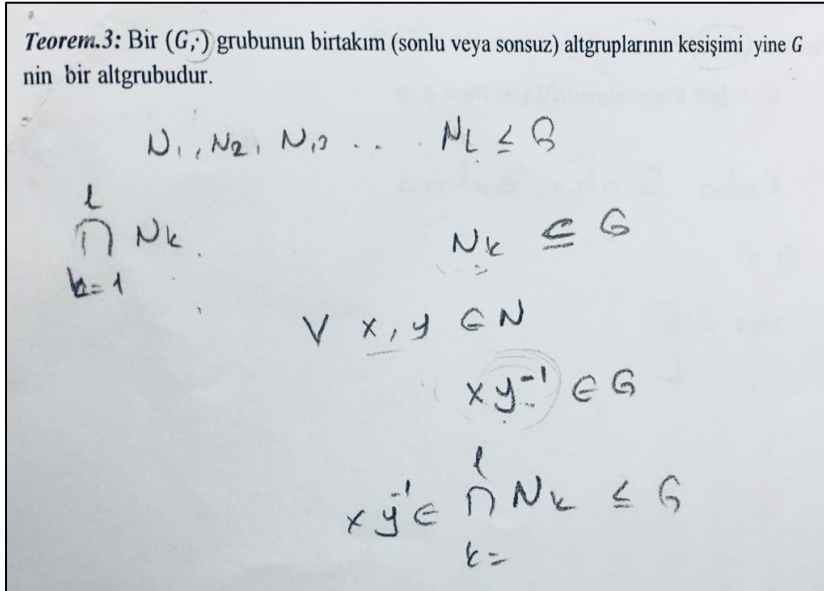 Teorem.3: Bir (G,·) grubunun birtakım (sonlu veya sonsuz) altgruplarının kesişimi yine G
nin bir altgrubudur.
N₁, N₂, N,₃ .. . N_L ≤ G
l
∩ N_k.
k=1
N_k ⊆ G
∀ x, y ∈ N
xy⁻¹ ∈ G
l
xy⁻¹ ∈ ∩ N_k ≤ G
k=